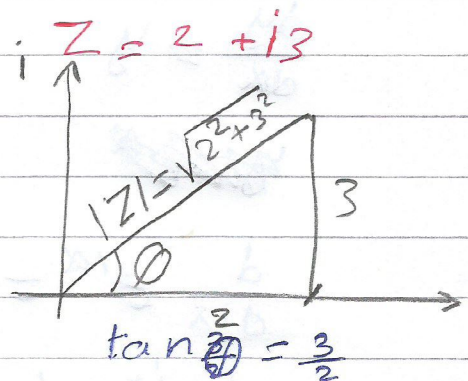 Z = 2 + i3
i
|Z| = √2² + 3²
3
Ø
2
tan Ø = 3/2